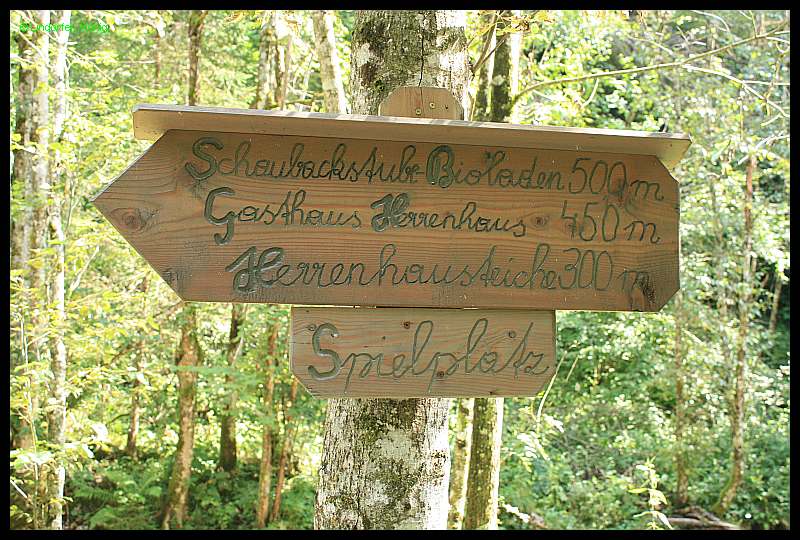 Schaubackstube Bioladen 500 m
Gasthaus Herrenhaus 450 m
Herrenhausteiche 300 m
Spielplatz